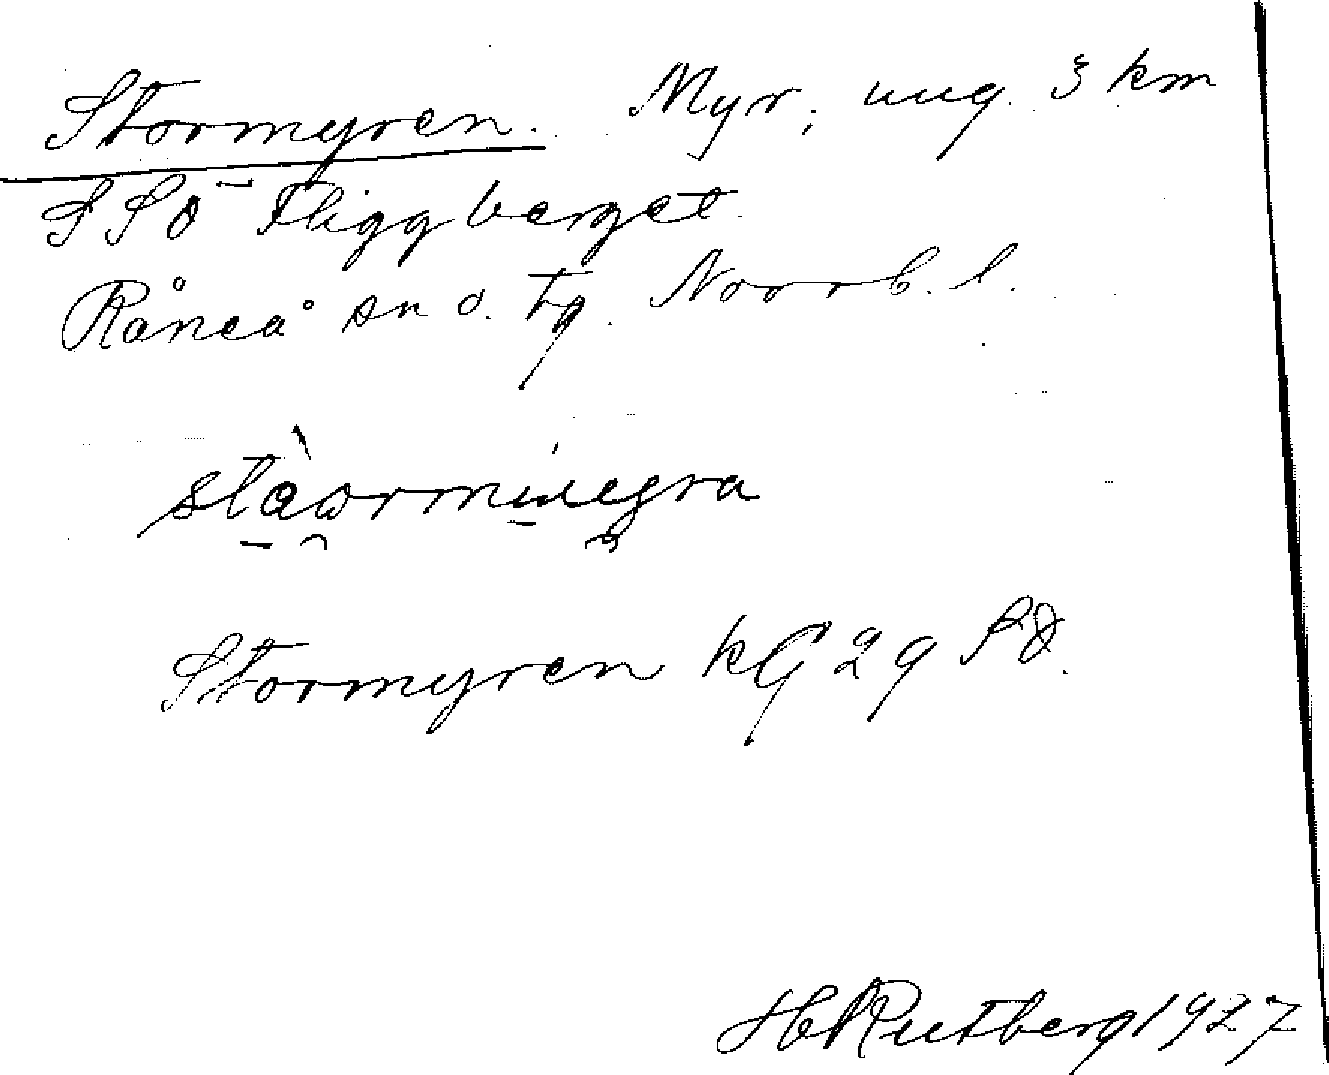 Stormyren. Myr, ung. 3 km
SSÖ Fliggberget
Råneå sn o. tg. Norrb. l.
Stormyren kG 29 SÖ.
H Rutberg 1927